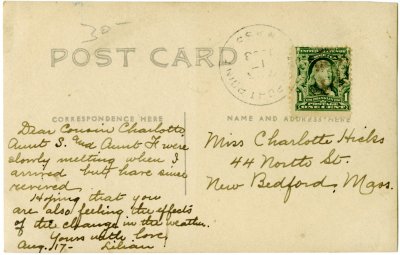 30-
POST CARD
CORRESPONDENCE HERE
NAME AND ADDRESS HERE
Dear Cousin Charlotte,
Aunt S. and Aunt H. were
slowly melting when I
arrived but have since
revived.
Hoping that you
are also feeling the effects
of the change in the weather.
Yours with love,
Aug. 17- Lilian
Miss Charlotte Hicks
44 North St.
New Bedford, Mass.
ONE CENT